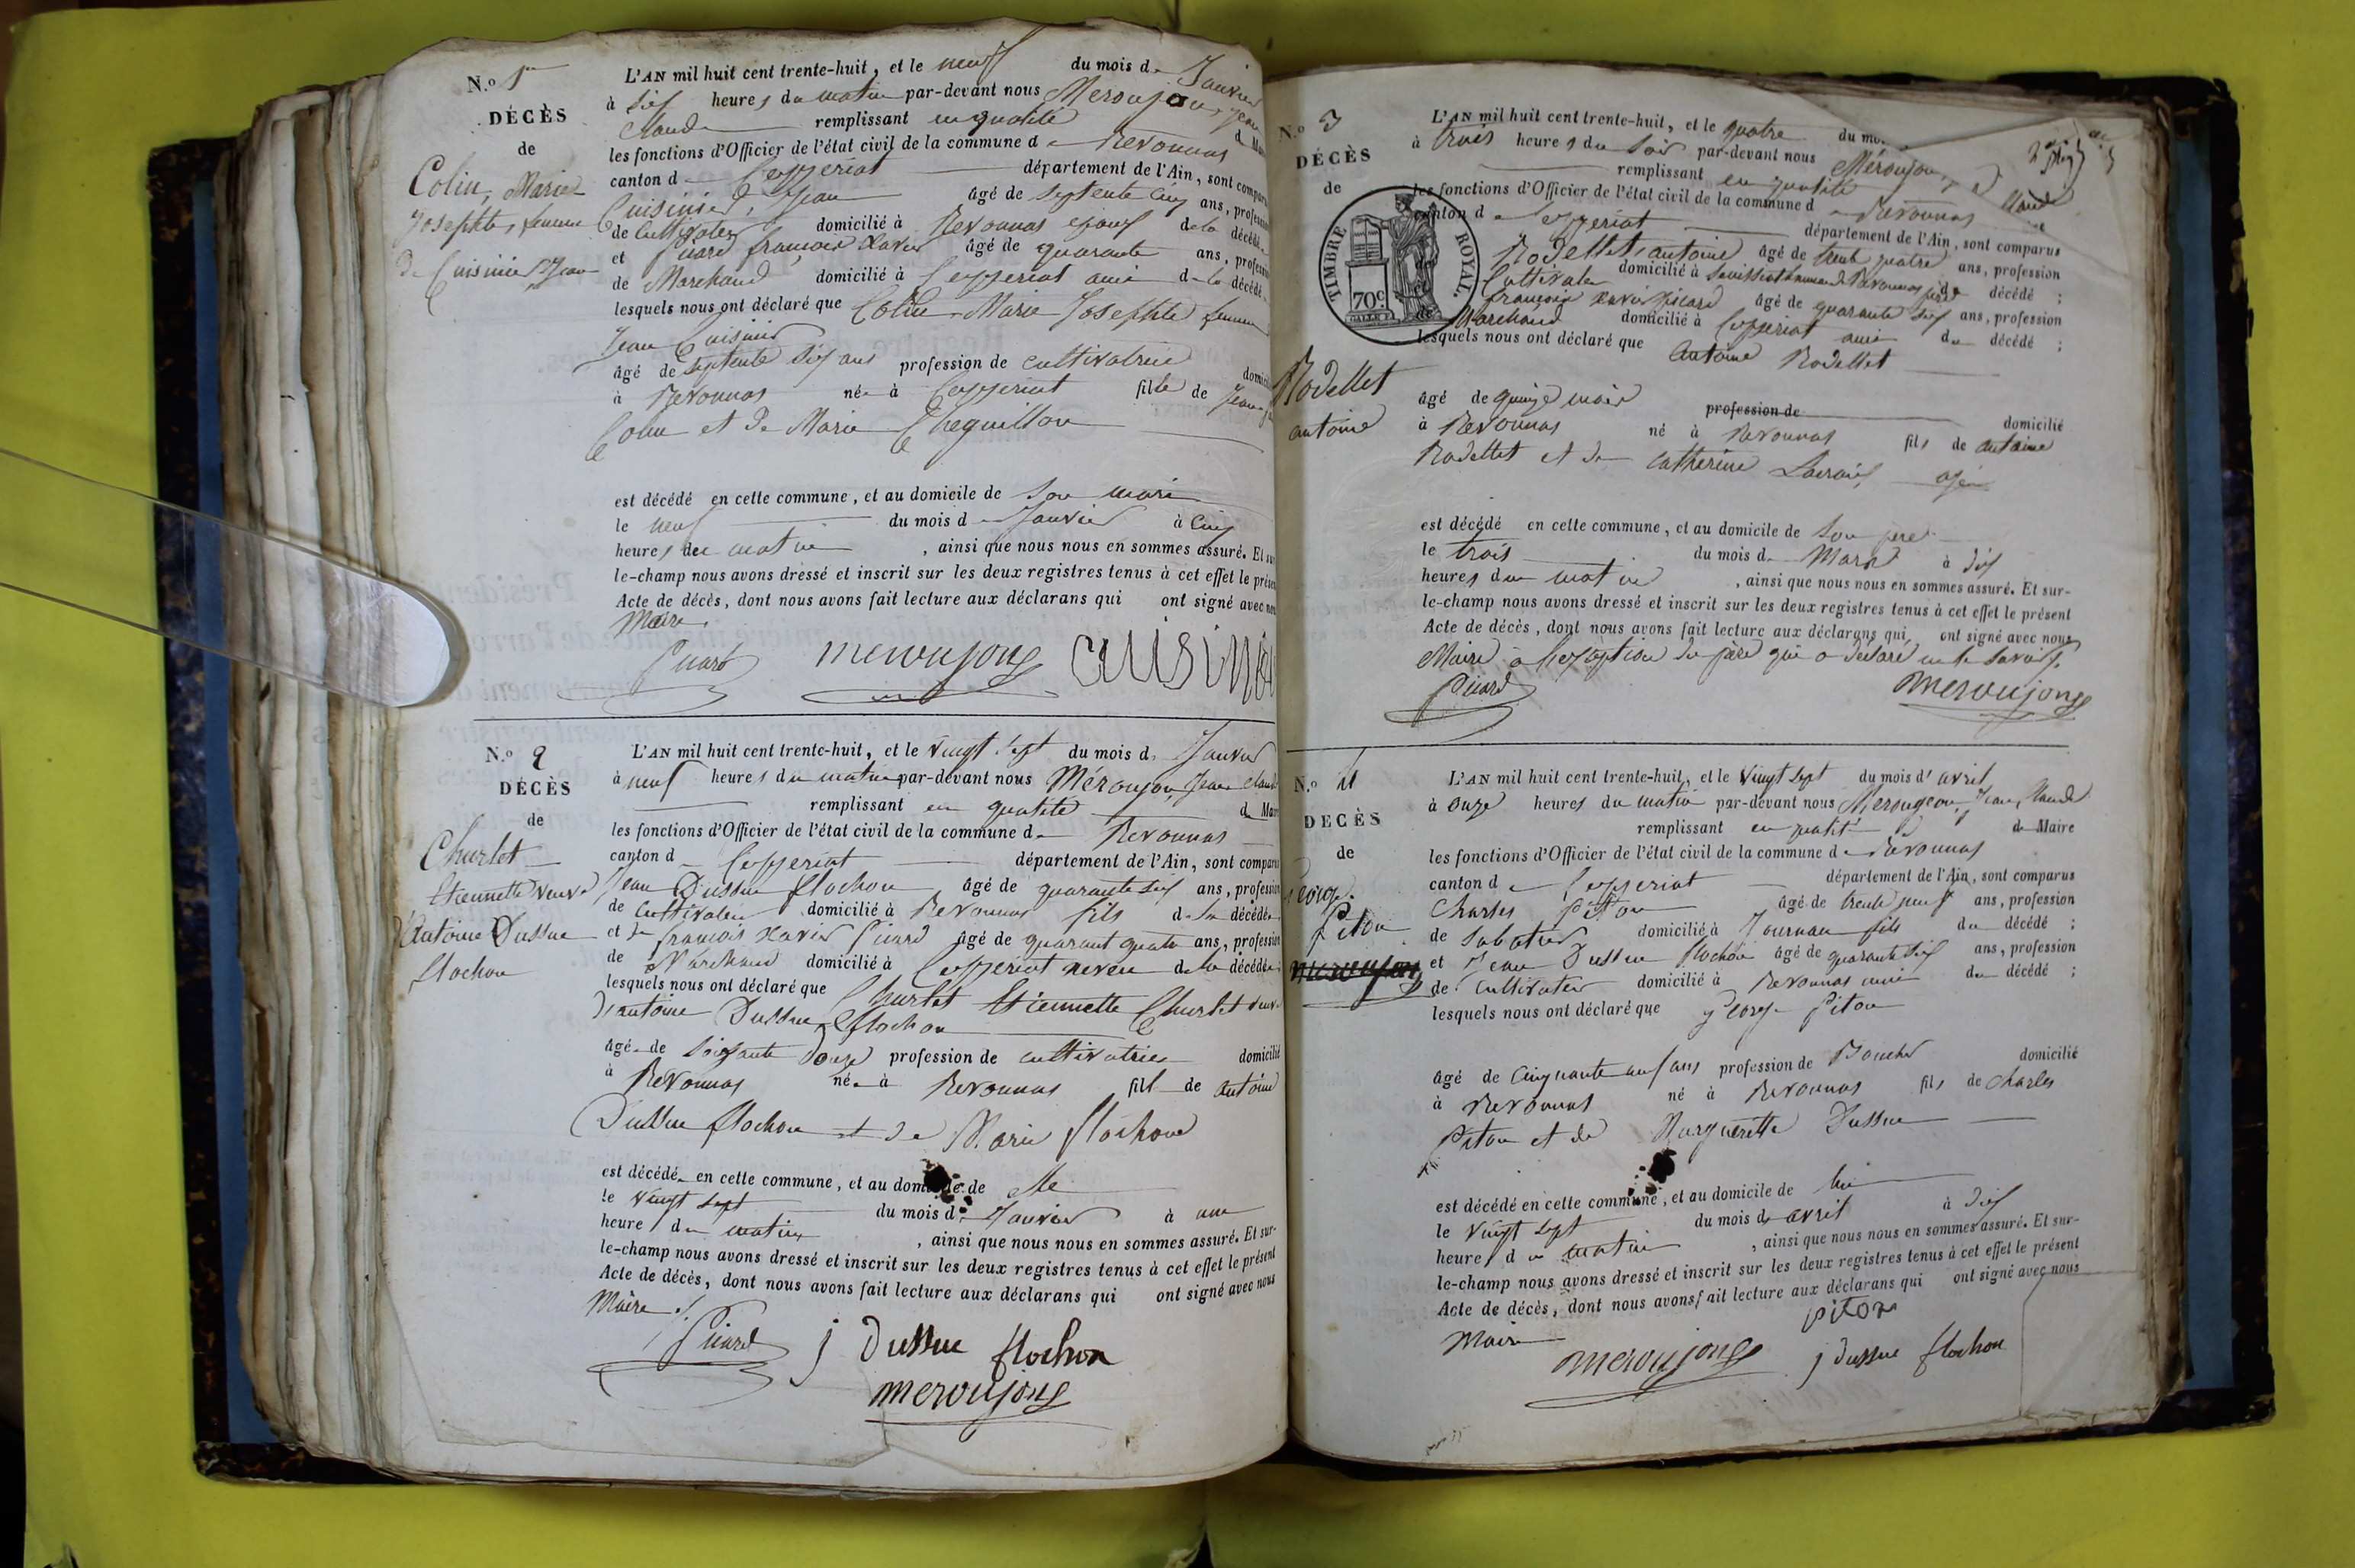 N.º 1er
DÉCÈS
de
Colin, Marie
Josephte, femme
de Cuisinier Jean
L'AN mil huit cent trente-huit, et le neuf du mois de Janvier
à dix heures du matin par-devant nous Meroujon, Jean
Claude remplissant en qualité d Mai
les fonctions d'Officier de l'état civil de la commune de Revonnas
canton de Ceyzeriat département de l'Ain, sont compar
Cuisinier, Jean âgé de septente cinq ans, profess
de cultivateur domicilié à Revonnas epoux de la décédé
et Picard françois Xavier âgé de quarante ans, profess
de Marchand domicilié à Ceyzeriat ami de la décédé
lesquels nous ont déclaré que Colin Marie Josephte femme
Jean Cuisinier
âgé de septente six ans profession de cultivatrice domici
à Revonnas née à Ceyzeriat fille de Jean
Colin et de Marie
est décédé en cette commune, et au domicile de son mari
le neuf du mois de Janvier à cinq
heures du matin, ainsi que nous nous en sommes assuré. Et sur
le-champ nous avons dressé et inscrit sur les deux registres tenus à cet effet le présen
Acte de décès, dont nous avons fait lecture aux déclarans qui ont signé avec nous
Maire.
Picard meroujong cuisinie
N.º 2
DÉCÈS
de
Churlet
Etiennette veuve
d'Antoine Dussue
flochon
L'AN mil huit cent trente-huit, et le vingt sept du mois de Janvier
à neuf heures du matin par-devant nous Méroujon, Jean Claude
remplissant en qualité de Mai
les fonctions d'Officier de l'état civil de la commune de Revonnas
canton de Ceyzeriat département de l'Ain, sont comparu
Jean Dussue flochon âgé de quarante six ans, profession
de cultivateur domicilié à Revonnas fils de la décédée
et de françois Xavier Picard âgé de quarant quatr ans, profession
de Marchand domicilié à Ceyzeriat neveu de la décédée
lesquels nous ont déclaré que Churlet Etiennette Churlet veuve
d'antoine Dussue flochon
âgé de soixante douze profession de cultivatrice domicilié
à Revonnas née à Revonnas fille de antoine
Dussue flochon et de Marie flochon
est décédée en cette commune, et au domicile de elle
le vingt sept du mois de Janvier à une
heure du matin, ainsi que nous nous en sommes assuré. Et sur-
le-champ nous avons dressé et inscrit sur les deux registres tenus à cet effet le présent
Acte de décès, dont nous avons fait lecture aux déclarans qui ont signé avec nous
Maire
Picard j Dussue flochon
meroujong
N.º 3
DÉCÈS
de
TIMBRE ROYAL.
70 c.
Rodellet
antoine
L'AN mil huit cent trente-huit, et le quatre du mo
à trois heures du soir par-devant nous Méroujon, J
Claude
remplissant en qualité
les fonctions d'Officier de l'état civil de la commune de Revonnas
canton de Ceyzeriat département de l'Ain, sont comparus
Rodellet, antoine âgé de trente quatre ans, profession
Cultivateur domicilié à Revonnas père décédé ;
françois xavier Picard âgé de quarante six ans, profession
Marchand domicilié à Ceyzeriat ami du décédé ;
lesquels nous ont déclaré que Antoine Rodellet
âgé de quinze mois profession de domicilié
à Revonnas né à Revonnas fils de antoine
Rodellet et de Catherine
est décédé en cette commune, et au domicile de son père
le trois du mois de Mars à dix
heures du matin, ainsi que nous nous en sommes assuré. Et sur-
le-champ nous avons dressé et inscrit sur les deux registres tenus à cet effet le présent
Acte de décès, dont nous avons fait lecture aux déclarans qui ont signé avec nous
Maire à l'exception du père qui a déclaré ne le savoir.
Picard meroujong
N.º 4
DÉCÈS
de
George
Piton
meroujong
L'AN mil huit cent trente-huit, et le vingt sept du mois d'avril
à onze heures du matin par-devant nous Merougeon, Jean Claude
remplissant en qualité de Maire
les fonctions d'Officier de l'état civil de la commune de Revonnas
canton de Ceyzeriat département de l'Ain, sont comparus
Charles Piton âgé de trente neuf ans, profession
de sabotier domicilié à Journan fils du décédé ;
et Jean Dussue flochon âgé de quarante six ans, profession
de Cultivateur domicilié à Revonnas ami du décédé ;
lesquels nous ont déclaré que George Piton
âgé de cinquante neuf ans profession de Boucher domicilié
à Revonnas né à Revonnas fils de Charles
Piton et de Marguerette Dussue
est décédé en cette commune, et au domicile de lui
le vingt sept du mois d avril à dix
heure du matin, ainsi que nous nous en sommes assuré. Et sur-
le-champ nous avons dressé et inscrit sur les deux registres tenus à cet effet le présent
Acte de décès, dont nous avons fait lecture aux déclarans qui ont signé avec nous
Maire piton
meroujong j Dussue flochon